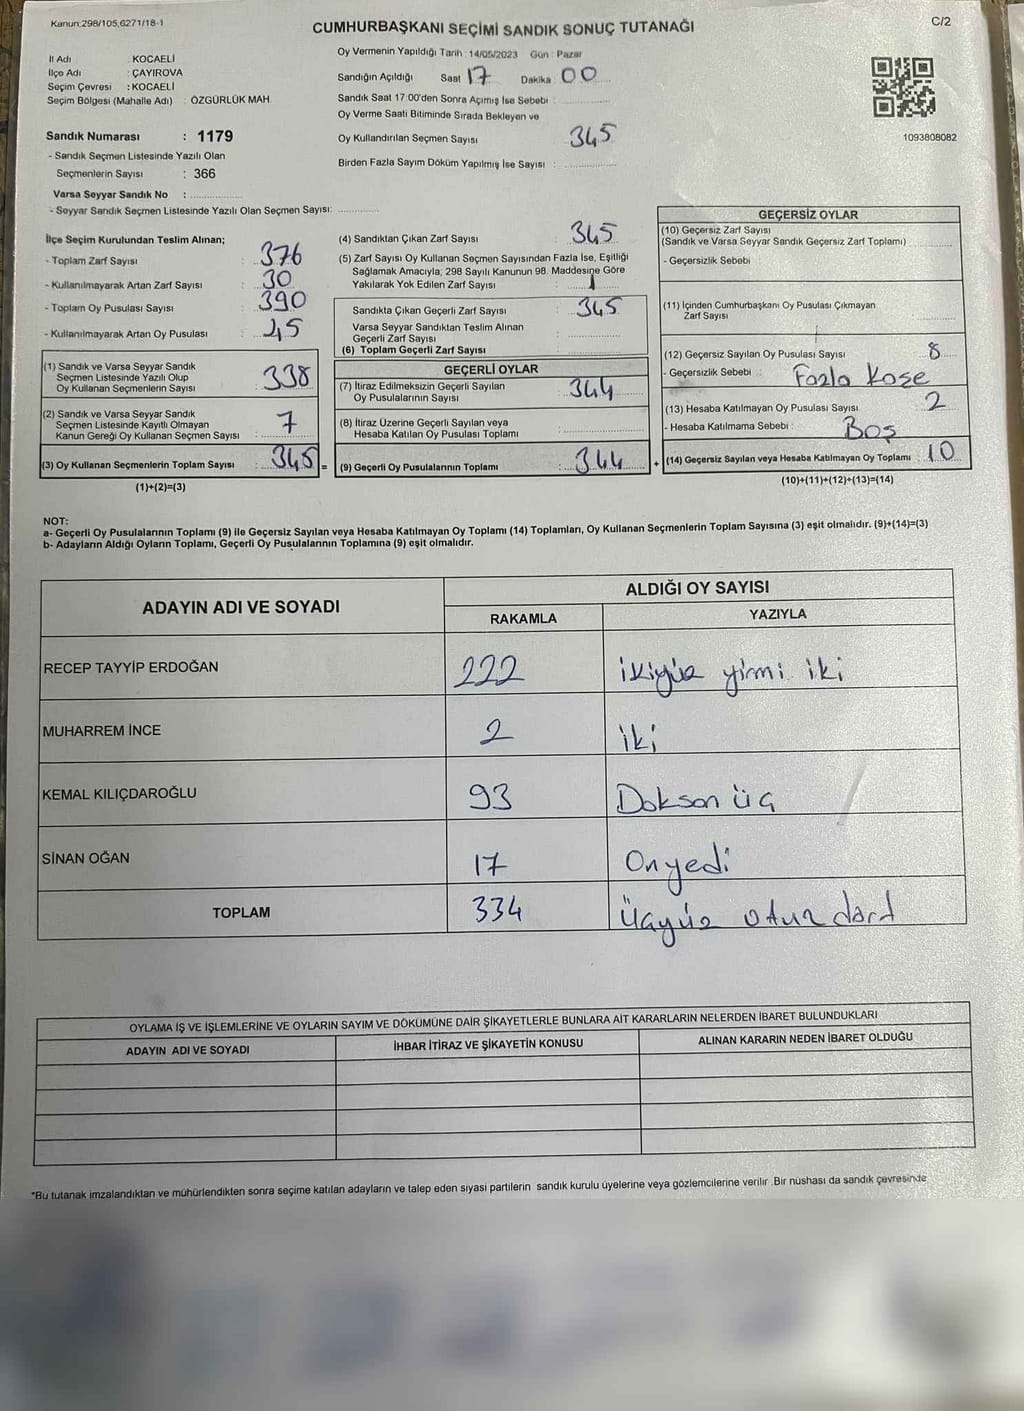 Kanun:298/105,6271/18-1
CUMHURBAŞKANI SEÇİMİ SANDIK SONUÇ TUTANAĞI
C/2
İl Adı : KOCAELİ
İlçe Adı : ÇAYIROVA
Seçim Çevresi : KOCAELİ
Seçim Bölgesi (Mahalle Adı) : ÖZGÜRLÜK MAH.
Oy Vermenin Yapıldığı Tarih : 14/05/2023 Gün : Pazar
Sandığın Açıldığı Saat 17 Dakika : 00
Sandık Saat 17:00'den Sonra Açımış İse Sebebi :
Oy Verme Saati Bitiminde Sırada Bekleyen ve
Oy Kullandırılan Seçmen Sayısı : 345
Birden Fazla Sayım Döküm Yapılmış İse Sayısı :
1093808082
Sandık Numarası : 1179
- Sandık Seçmen Listesinde Yazılı Olan
Seçmenlerin Sayısı : 366
Varsa Seyyar Sandık No :
- Seyyar Sandık Seçmen Listesinde Yazılı Olan Seçmen Sayısı:
İlçe Seçim Kurulundan Teslim Alınan;
- Toplam Zarf Sayısı : 376
- Kullanılmayarak Artan Zarf Sayısı : 30
- Toplam Oy Pusulası Sayısı : 390
- Kullanılmayarak Artan Oy Pusulası : 45
(1) Sandık ve Varsa Seyyar Sandık
Seçmen Listesinde Yazılı Olup
Oy Kullanan Seçmenlerin Sayısı : 338
(2) Sandık ve Varsa Seyyar Sandık
Seçmen Listesinde Kayıtlı Olmayan
Kanun Gereği Oy Kullanan Seçmen Sayısı : 7
(3) Oy Kullanan Seçmenlerin Toplam Sayısı : 345 =
(1)+(2)=(3)
(4) Sandıktan Çıkan Zarf Sayısı : 345
(5) Zarf Sayısı Oy Kullanan Seçmen Sayısından Fazla İse, Eşitliği
Sağlamak Amacıyla; 298 Sayılı Kanunun 98. Maddesine Göre
Yakılarak Yok Edilen Zarf Sayısı : 1
Sandıkta Çıkan Geçerli Zarf Sayısı : 345
Varsa Seyyar Sandıktan Teslim Alınan
Geçerli Zarf Sayısı :
(6) Toplam Geçerli Zarf Sayısı :
GEÇERLİ OYLAR
(7) İtiraz Edilmeksizin Geçerli Sayılan
Oy Pusulalarının Sayısı : 344
(8) İtiraz Üzerine Geçerli Sayılan veya
Hesaba Katılan Oy Pusulası Toplamı :
(9) Geçerli Oy Pusulalarının Toplamı : 344 +
GEÇERSİZ OYLAR
(10) Geçersiz Zarf Sayısı
(Sandık ve Varsa Seyyar Sandık Geçersiz Zarf Toplamı) :
- Geçersizlik Sebebi :
(11) İçinden Cumhurbaşkanı Oy Pusulası Çıkmayan
Zarf Sayısı :
(12) Geçersiz Sayılan Oy Pusulası Sayısı : 8
- Geçersizlik Sebebi : Fazla Kaşe
(13) Hesaba Katılmayan Oy Pusulası Sayısı : 2
- Hesaba Katılmama Sebebi : Boş
(14) Geçersiz Sayılan veya Hesaba Katılmayan Oy Toplamı : 10
(10)+(11)+(12)+(13)=(14)
NOT:
a- Geçerli Oy Pusulalarının Toplamı (9) ile Geçersiz Sayılan veya Hesaba Katılmayan Oy Toplamı (14) Toplamları, Oy Kullanan Seçmenlerin Toplam Sayısına (3) eşit olmalıdır. (9)+(14)=(3)
b- Adayların Aldığı Oyların Toplamı, Geçerli Oy Pusulalarının Toplamına (9) eşit olmalıdır.
ADAYIN ADI VE SOYADI
ALDIĞI OY SAYISI
RAKAMLA YAZIYLA
RECEP TAYYİP ERDOĞAN 222 ikiyüz yirmi iki
MUHARREM İNCE 2 iki
KEMAL KILIÇDAROĞLU 93 Doksan üç
SİNAN OĞAN 17 Onyedi
TOPLAM 334 üçyüz otuz dört
OYLAMA İŞ VE İŞLEMLERİNE VE OYLARIN SAYIM VE DÖKÜMÜNE DAİR ŞİKAYETLERLE BUNLARA AİT KARARLARIN NELERDEN İBARET BULUNDUKLARI
ADAYIN ADI VE SOYADI İHBAR İTİRAZ VE ŞİKAYETİN KONUSU ALINAN KARARIN NEDEN İBARET OLDUĞU
*Bu tutanak imzalandıktan ve mühürlendikten sonra seçime katılan adayların ve talep eden siyasi partilerin sandık kurulu üyelerine veya gözlemcilerine verilir .Bir nüshası da sandık çevresinde